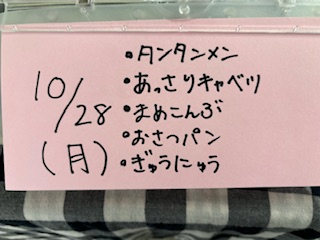 10/28
(月)
・タンタンメン
・あっさりキャベツ
・まめこんぶ
・おさつパン
・ぎゅうにゅう